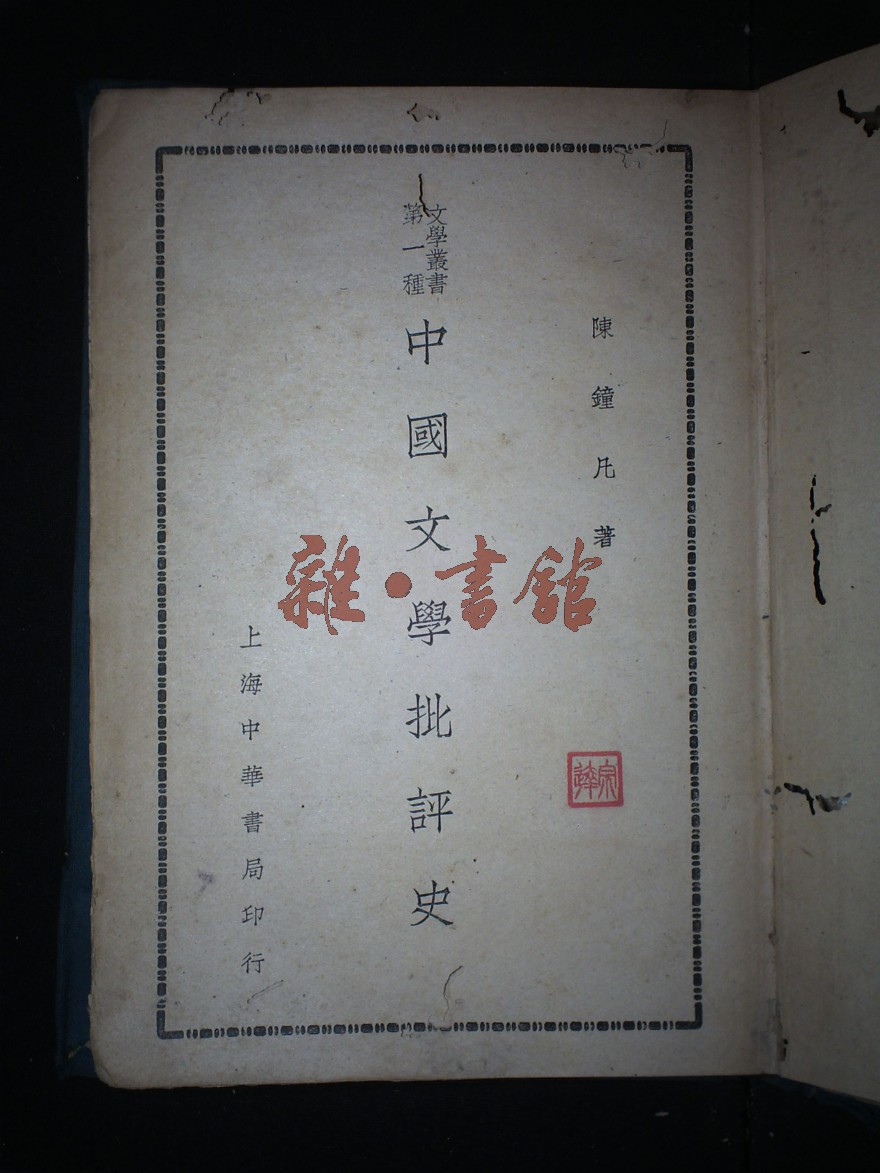 陳鐘凡著
文學叢書
第一種
中國文學批評史
上海中華書局印行
雜·書館